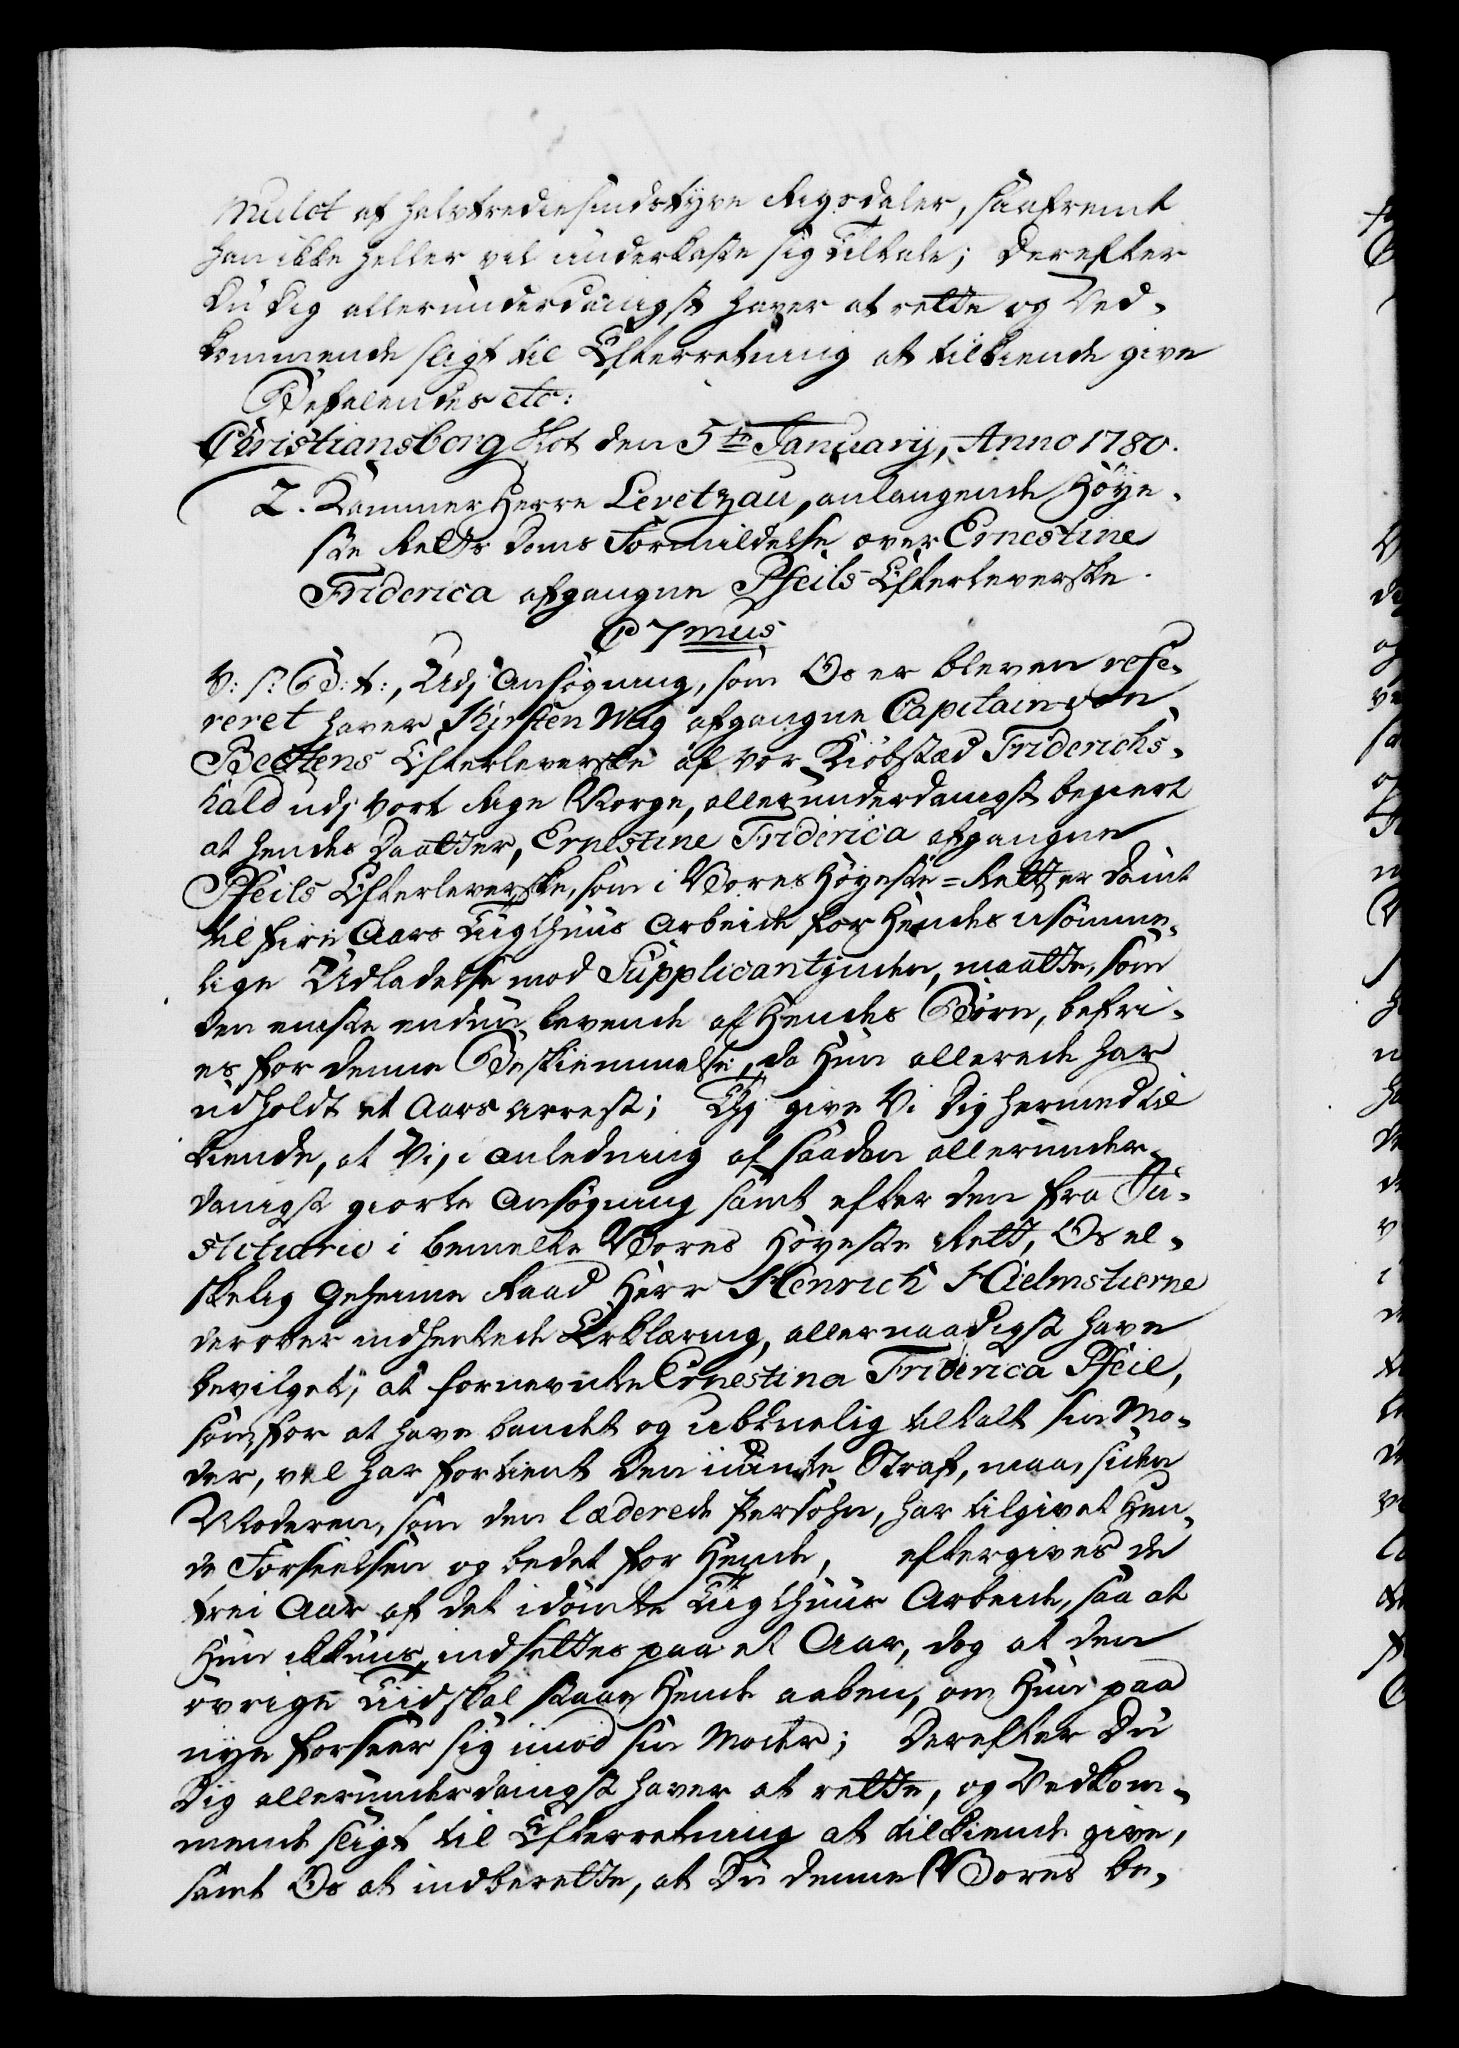 Mulct af halvtrediesindstyve Rigsdaler, saafremt
han ikke heller vil underkaste sig Tiltale; Derefter
du dig allerunderdanigst haver at rette og Ved-
kommende sligt til Efterretning at tilkiende give
Befalendes etc:
Christiansborg Slot den 5te January, Anno 1780.
2. Kammer Herre Levetzau, anlangende Høye-
ste Retts Doms Formildelse over Ernestine
Friderica afgangne Pfeils Efterleverske.
C 7mus
V: S: G: t:, Udj Ansøgning, som Os er bleven refe-
reret haver Kirsten Mag afgangne Capitain von
Bechtens Efterleverske af vor Kiøbstæd Friderichs-
hald udj vort Rige Norge, allerunderdanigst begiert
at hendes Daatter, Ernestine Friderica afgangne
Pfeils Efterleverske, som i Vores Høyeste-Rett er dømt
til fire Aars Tugthuus Arbeide for Hendes usømme-
lige Udladelse mod Supplicantinden, maatte, som
den eneste endnu levende af Hendes Børn, befri-
es for denne Beskiemmelse, da Hun allerede har
udholdt et Aars Arrest; Thj give Vi Dig hermed til
kiende, at Vi, i Anledning af saadan allerunder-
danigst giorte Ansøgning samt efter den fra Ju-
stitiario i bemelte Vores Høyeste Rett, Os el-
skelig Geheime Raad Herr Henrich Hielmstierne
derover indhentede Erklæring, allernaadigst have
bevilget, at fornevnte Ernestina Friderica Pfeil,
som for at have bandet og uhøvelig tiltalt sin Mo-
der, vel har fortient den idømte Straf, maa, siden
Moderen, som den læderede Persohn, har tilgivet Hen-
de Forseelsen og bedet for Hende, eftergives de
trei Aar af det idømte Tugthuus Arbeide, saa at
Hun ikkuns indsettes paa et Aar, dog at den
øvrige Tiid skal staae Hende aaben, om Hun paa
nye forseer sig imod sin Moder; Derefter Du
Dig allerunderdanigst haver at rette, og Vedkom-
mende sligt til Efterretning at tilkiende give,
samt Os at indberette, at Du denne Vores be-